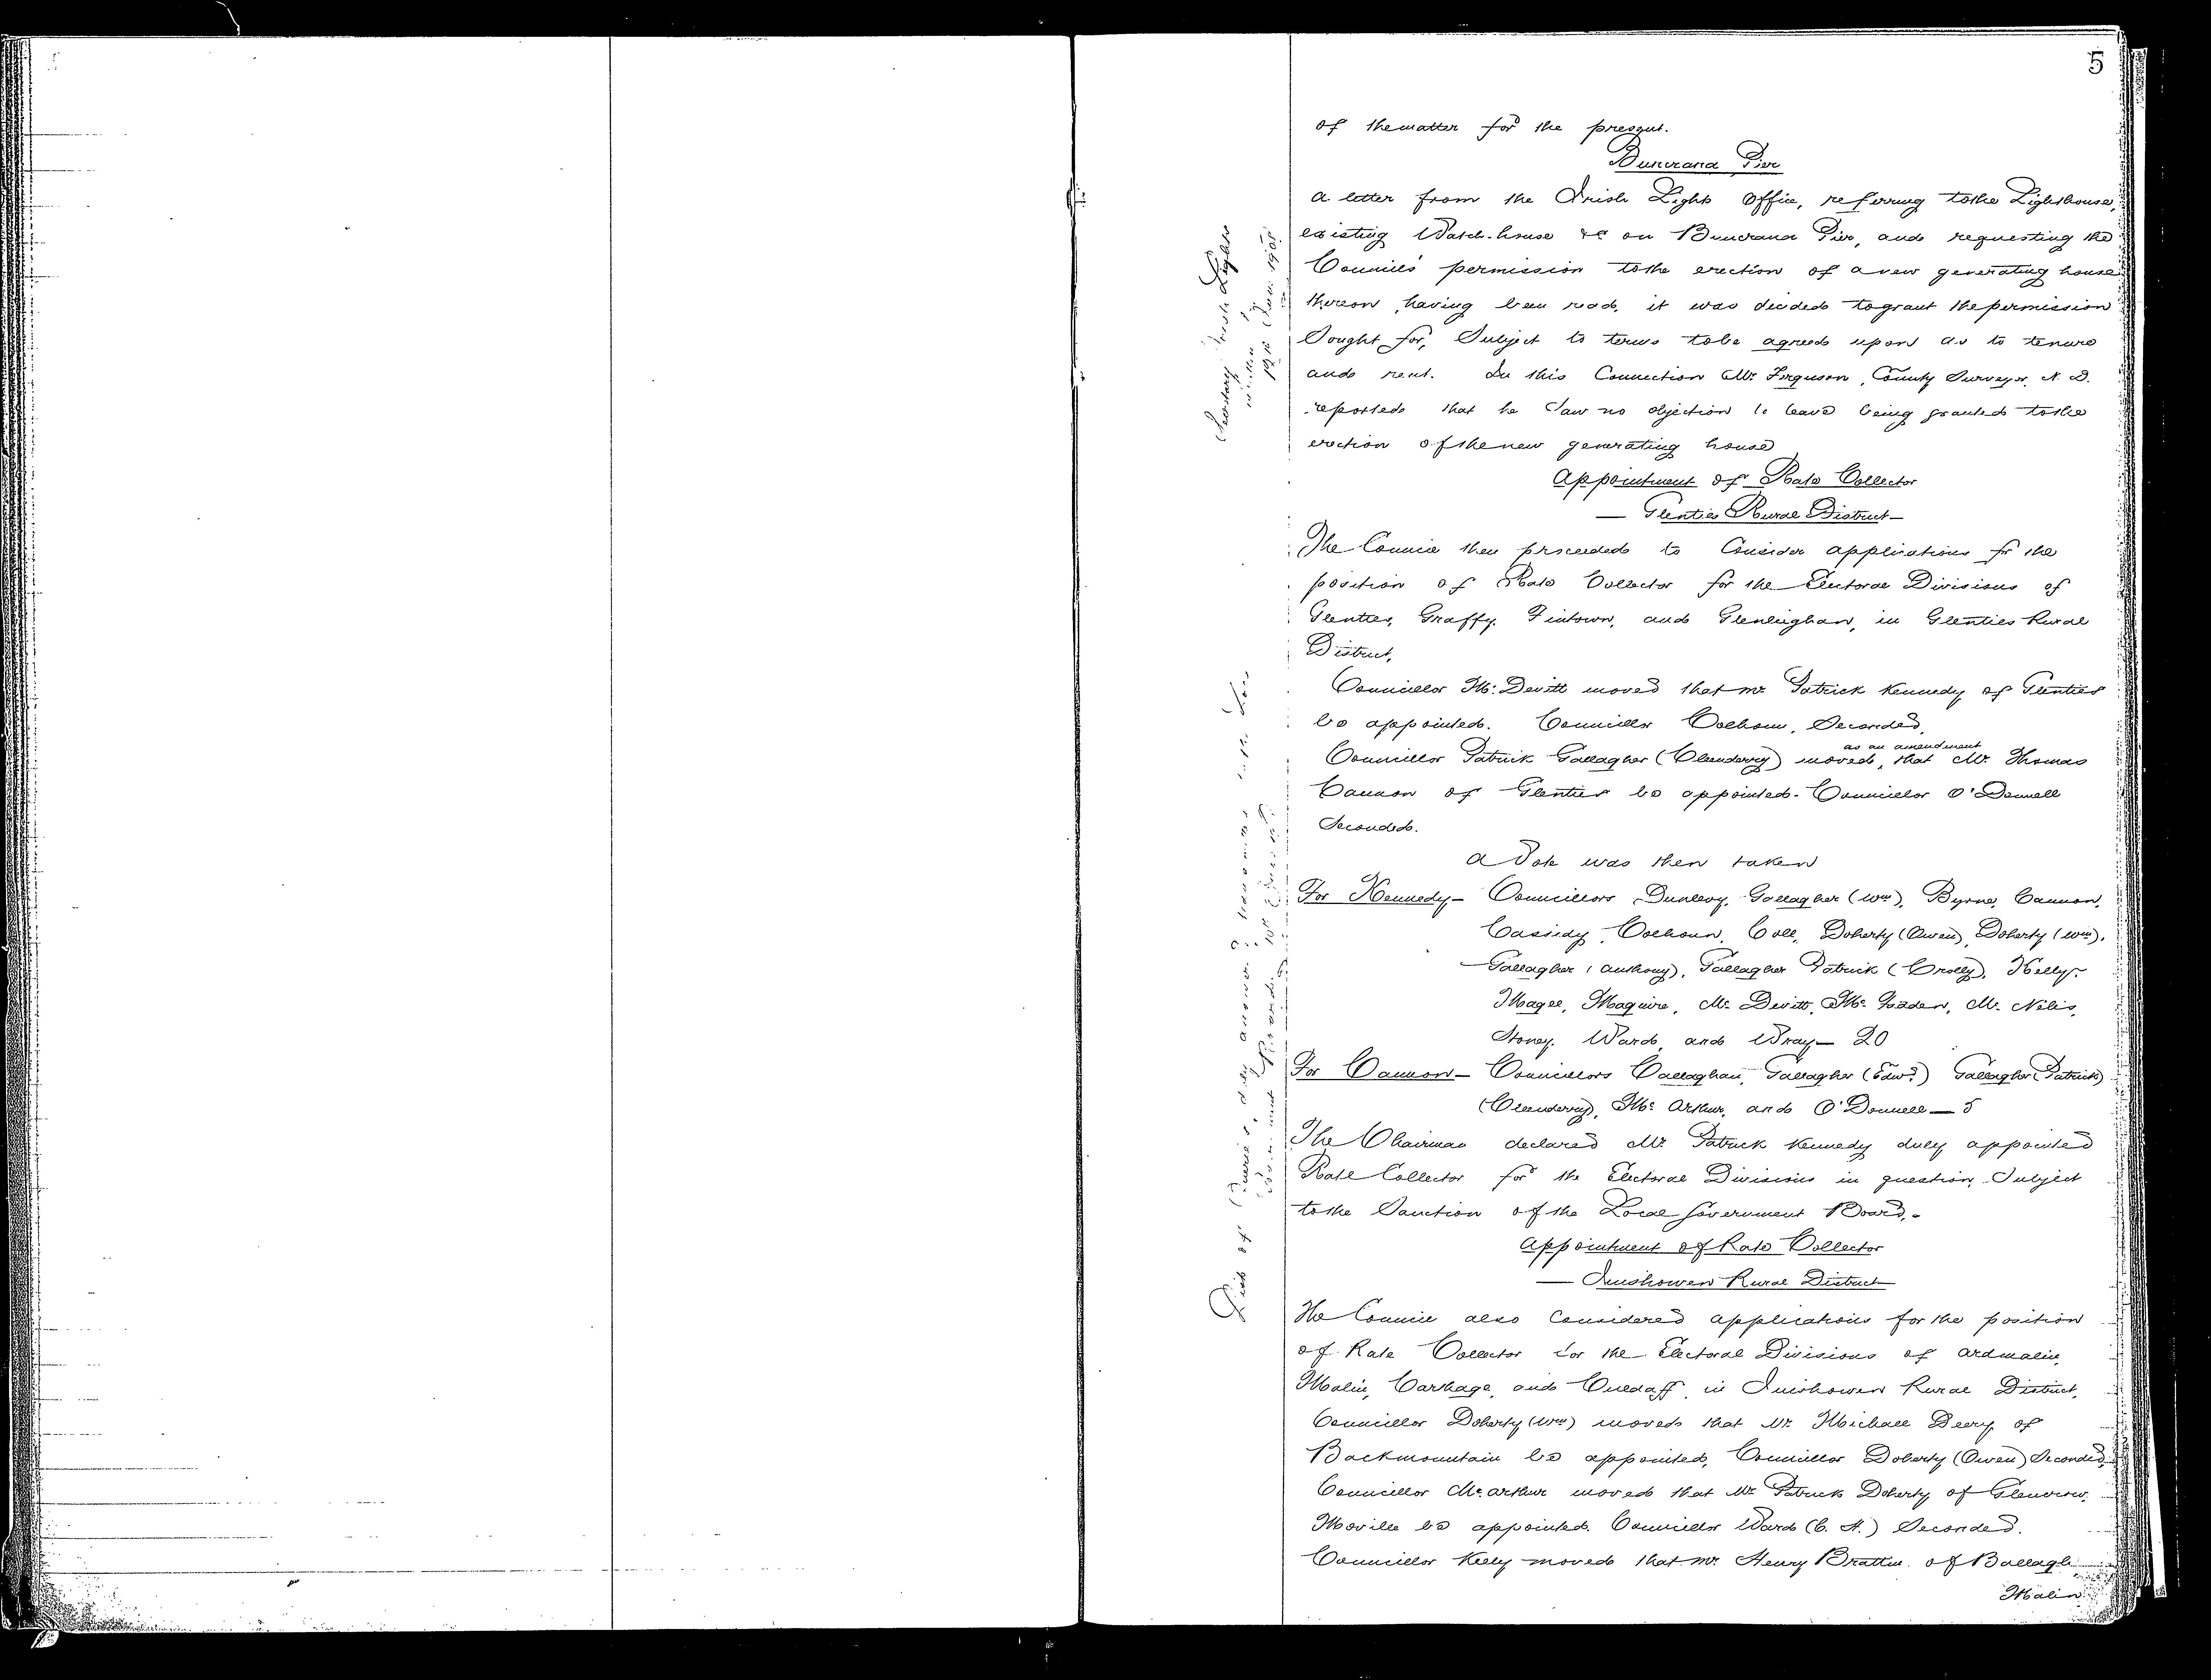 5
of the matter for the present.
Buncrana Pier
A letter from the Irish Lights Office, referring to the Lighthouse,
existing Watch-house &c on Buncrana Pier, and requesting the
Council's permission to the erection of a new generating house
thereon, having been read, it was decided to grant the permission
Sought for, Subject to terms to be agreed upon as to tenure
and rent. In this Connection Mr Ferguson, County Surveyor, N. D.
reported that he Saw no objection to leave being granted to the
erection of the new generating house
Appointment of Rate Collector
— Glenties Rural District —
The Council then proceeded to Consider applications for the
position of Rate Collector for the Electoral Divisions of
Glenties, Graffy, Fintown, and Glenleighan, in Glenties Rural
District.
Councillor Mc Devitt moved that Mr Patrick Kennedy of Glenties
be appointed. Councillor Colhoun, Seconded.
as an amendment
Councillor Patrick Gallagher (Cleendery) moved, that Mr. Thomas
Cannon of Glenties be appointed. Councillor O'Donnell
Seconded.
A Vote was then taken
For Kennedy — Councillors Dunlevy, Gallagher (Wm), Byrne, Cannon,
Cassidy, Colhoun, Coll, Doherty (Owen), Doherty (Wm),
Gallagher (Anthony), Gallagher Patrick (Crolly), Kelly,
Magee, Maguire, Mc Devitt, Mc Fadden, Mc Nelis,
Stoney, Ward, and Wray — 20
For Cannon — Councillors Callaghan, Gallagher (Edwd) Gallagher (Patrick)
(Cleendery), Mc Arthur, and O'Donnell — 5
The Chairman declared Mr Patrick Kennedy duly appointed
Rate Collector for the Electoral Divisions in question, Subject
to the Sanction of the Local Government Board.
Appointment of Rate Collector
— Inishowen Rural District
The Council also Considered applications for the position
of Rate Collector for the Electoral Divisions of Ardmalin,
Malin, Carthage, and Culdaff, in Inishowen Rural District.
Councillor Doherty (Wm) moved that Mr. Michael Deery of
Backmountain be appointed, Councillor Doherty (Owen) Seconded.
Councillor McArthur moved that Mr Patrick Doherty of Glenview,
Moville be appointed. Councillor Ward (C. A.) Seconded.
Councillor Kelly moved that Mr Henry Brattin of Ballagh
Malin